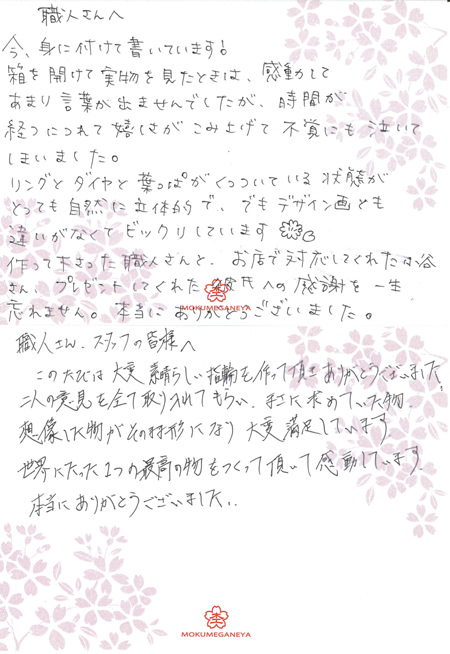 職人さんへ
今、身に付けて書いています!
箱を開けて実物を見たときは、感動して
あまり言葉が出ませんでしたが、時間が
経つにつれて嬉しさがこみ上げて不覚にも泣いて
しまいました。
リングとダイヤと葉っぱがくっついている状態が
とっても自然に立体的で、でもデザイン画とも
違いがなくてビックリしています
作って下さった職人さんと、お店で対応してくれた谷
さん、プレゼントしてくれた彼氏への感謝を一生
忘れません。本当にありがとうございました。
MOKUMEGANEYA
職人さん、スタッフの皆様へ
このたびは大変素晴らしい指輪を作って頂きありがとうございました!
二人の意見を全て取り入れてもらい、正に求めていた物、
想像した物がその様形になり大変満足しています
世界にたった1つの最高の物をつくって頂いて感動しています
本当にありがとうございました。
MOKUMEGANEYA